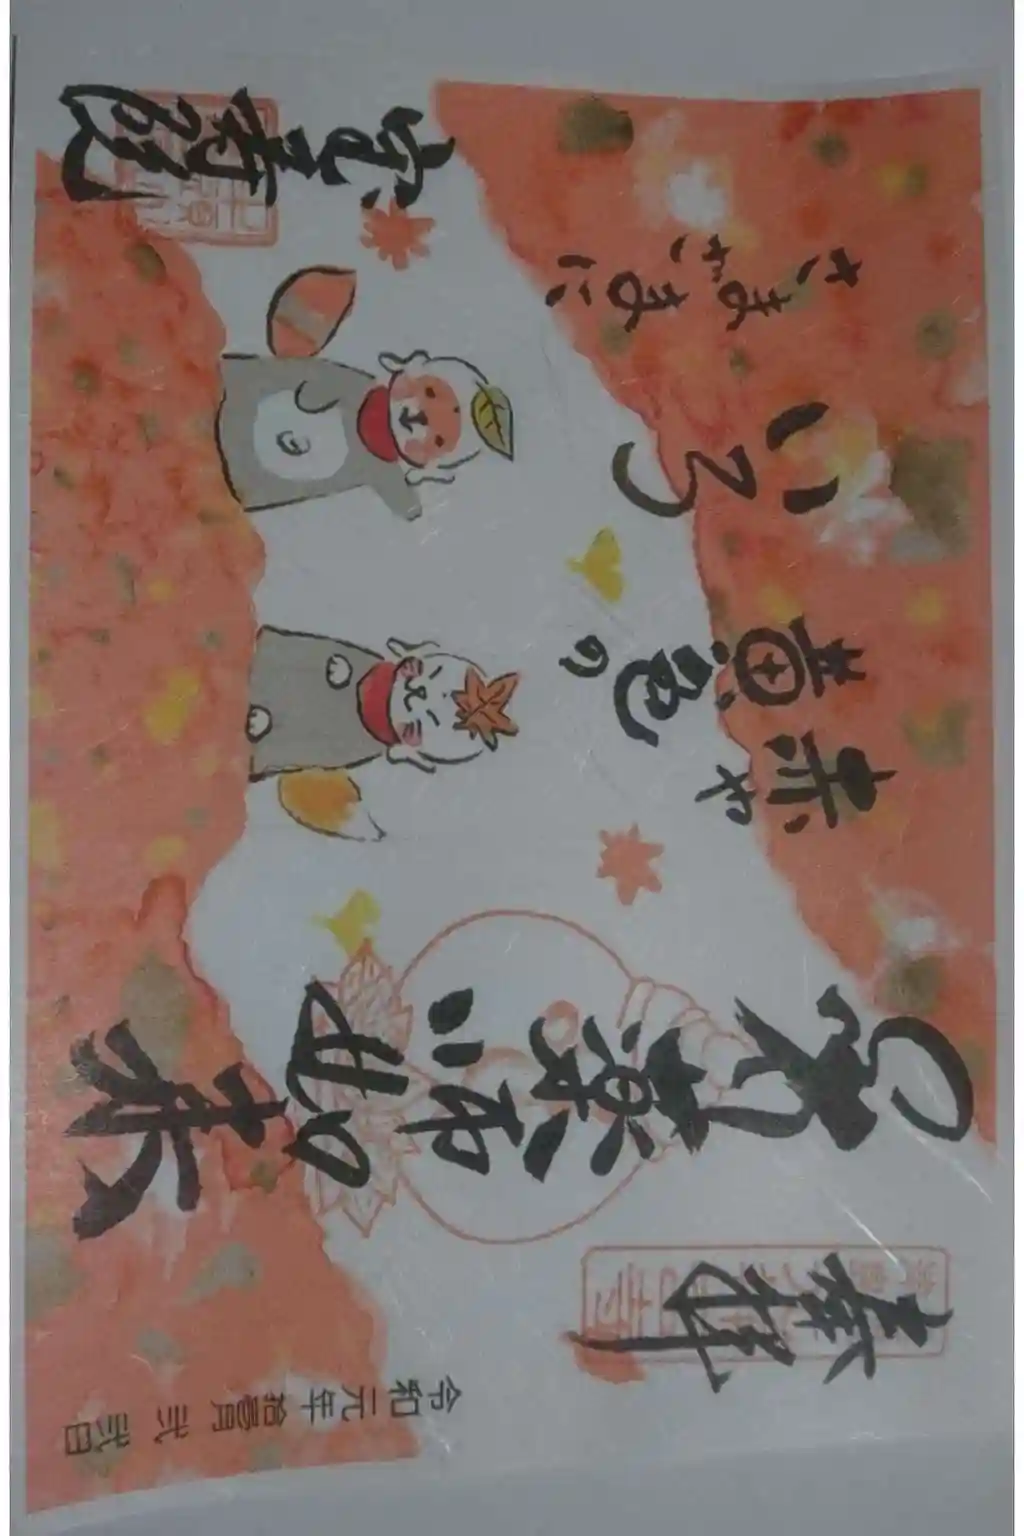 奉拝
令和元年拾壱月弐弐日
薬師如来
赤や
黄色の
いろ
さまざまに
宝寿院